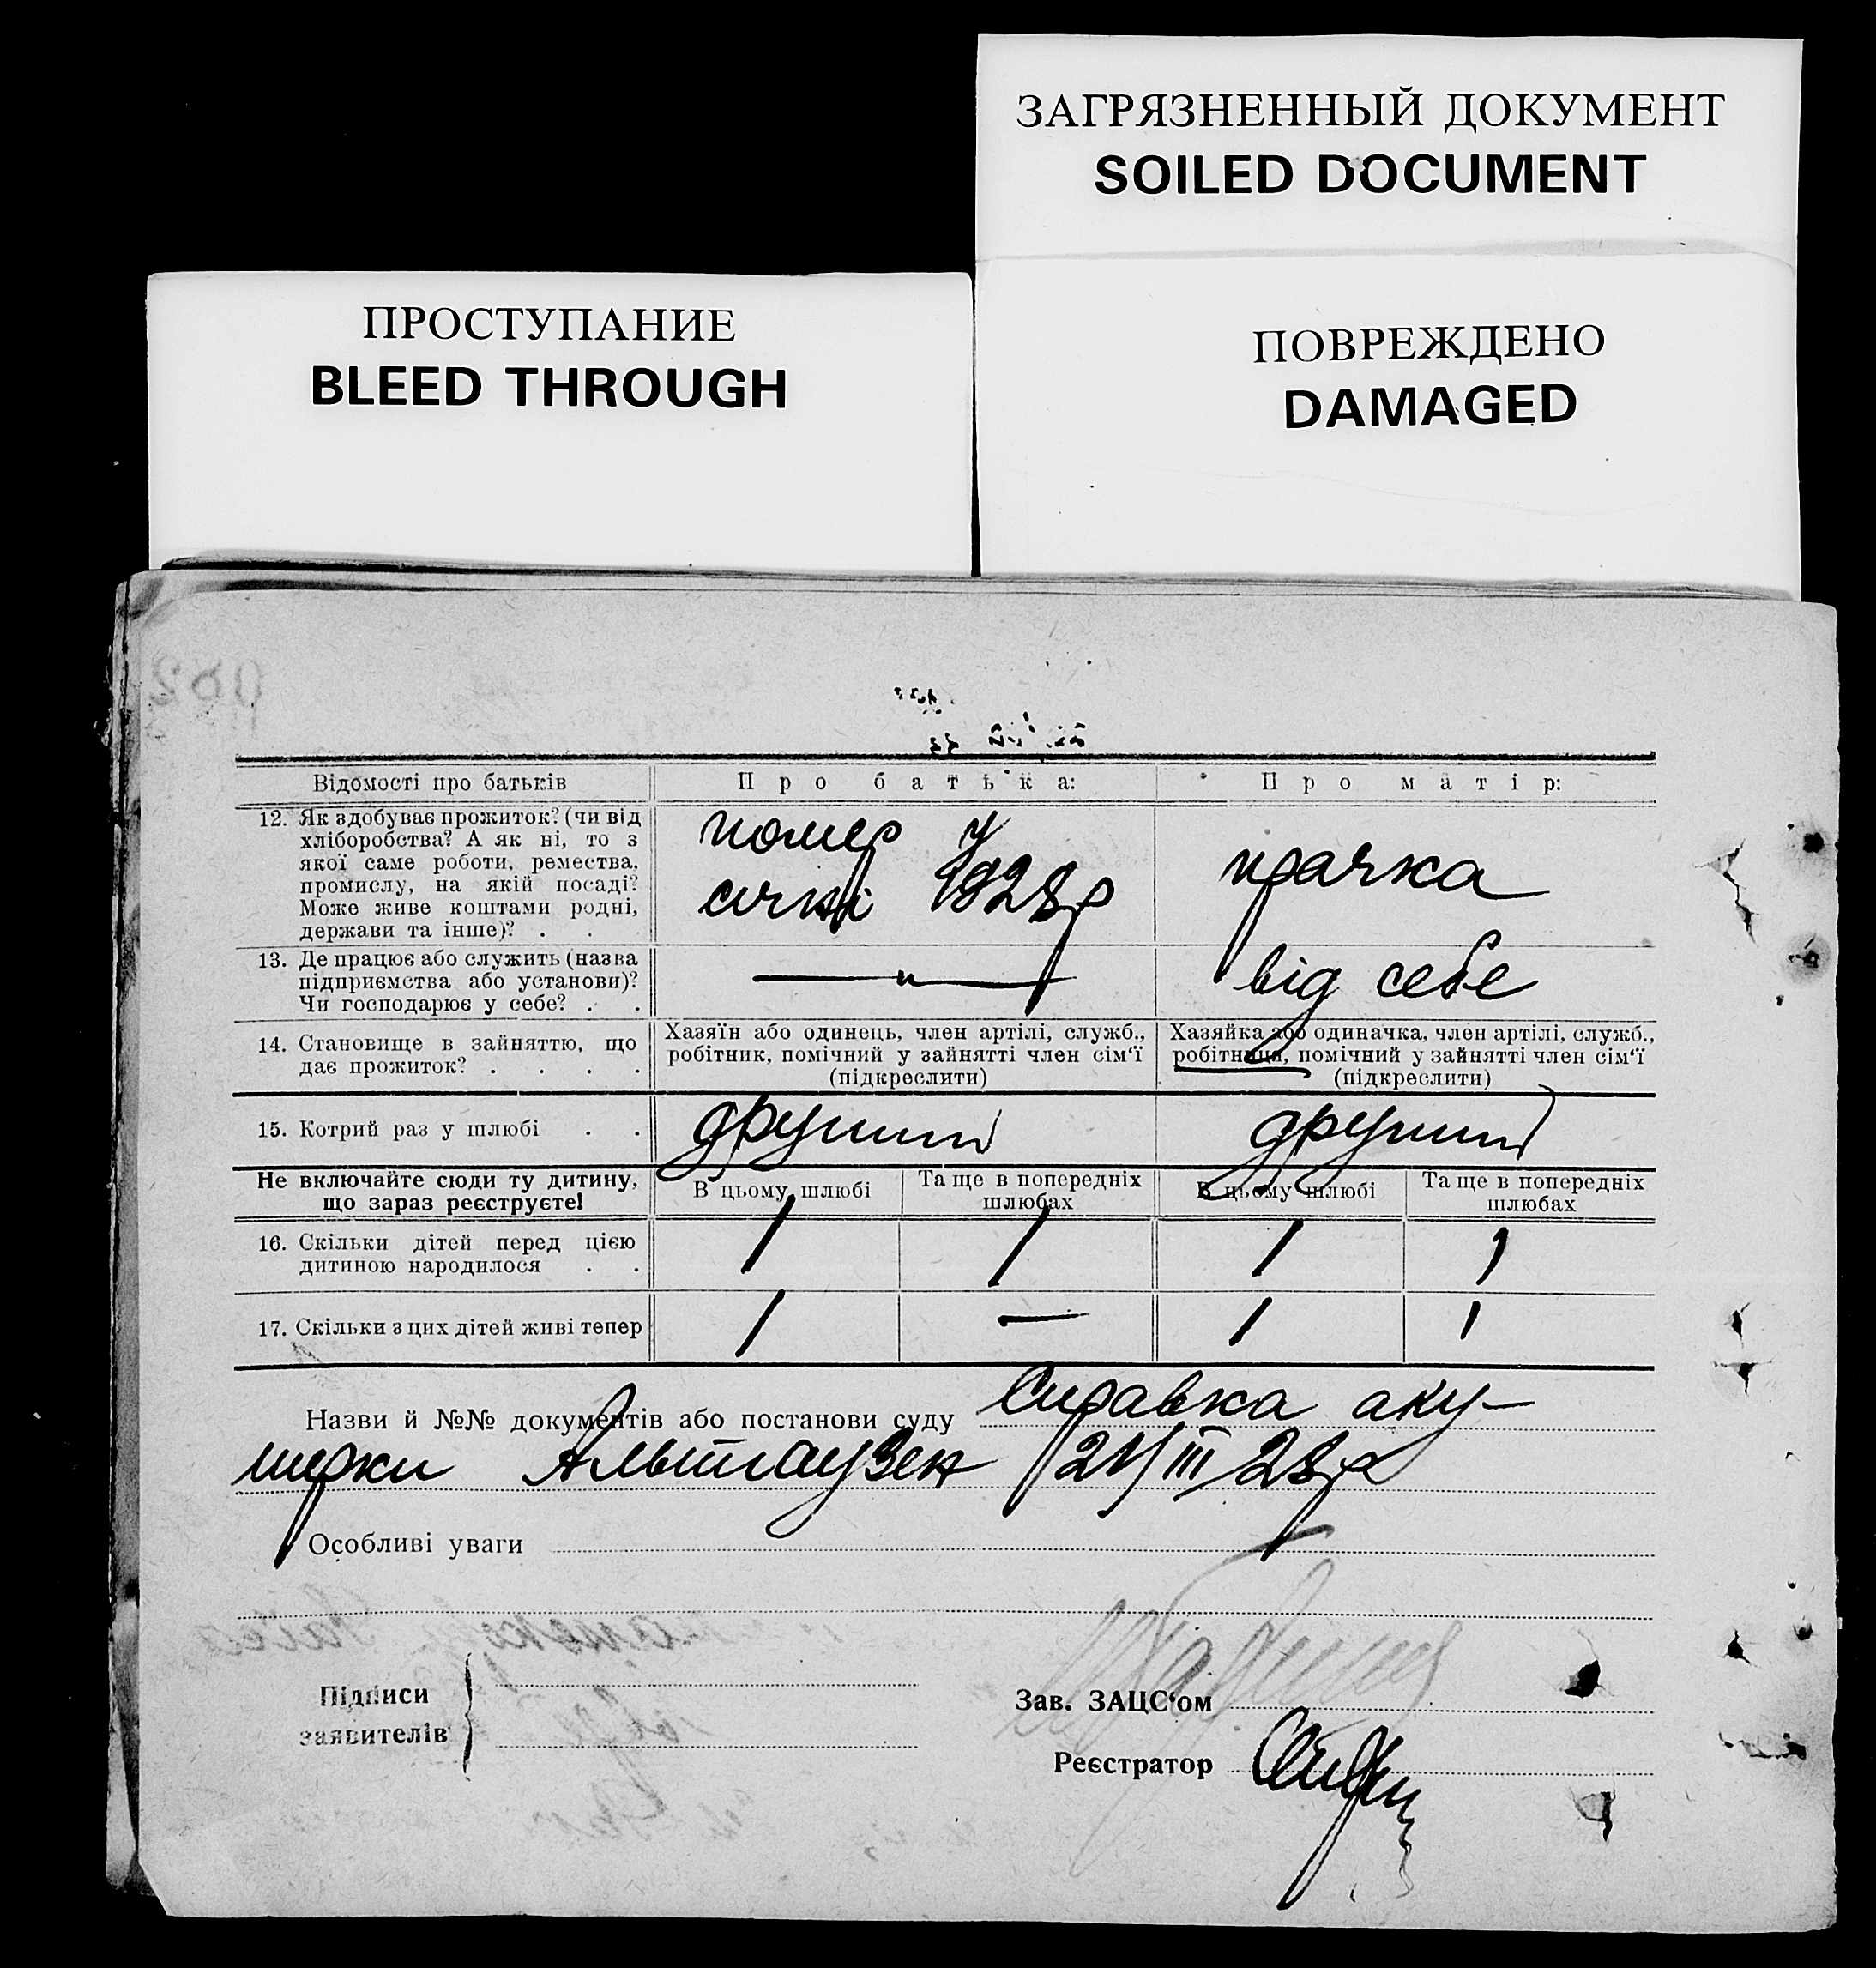 ЗАГРЯЗНЕННЫЙ ДОКУМЕНТ
SOILED DOCUMENT
ПРОСТУПАНИЕ
BLEED THROUGH
ПОВРЕЖДЕНО
DAMAGED
Відомості про батьків
Про батька:
Про матір:
12. Як здобуває прожиток? (чи від
хліборобства? А як ні, то з
якої саме роботи, ремества,
промислу, на якій посаді?
Може живе коштами родні,
держави та інше)? . .
помер у
січні 1928р
прачка
13. Де працює або служить (назва
підприємства або установи)?
Чи господарює у себе? . .
— " —
від себе
14. Становище в зайняттю, що
дає прожиток? . . . .
Хазяїн або одинець, член артілі, служб.,
робітник, помічний у зайнятті член сім'ї
(підкреслити)
Хазяйка або одиначка, член артілі, служб.,
робітниця, помічний у зайнятті член сім'ї
(підкреслити)
15. Котрий раз у шлюбі . .
другий
другий
Не включайте сюди ту дитину,
що зараз реєструєте!
В цьому шлюбі
Та ще в попередніх
шлюбах
В цьому шлюбі
Та ще в попередніх
шлюбах
16. Скільки дітей перед цією
дитиною народилося . .
1 1 1 1
17. Скільки з цих дітей живі тепер
1 — 1 1
Назви й №№ документів або постанови суду Справка аку-
шерки Альтгаузен 21/III 28р
Особливі уваги
Підписи
заявителів
Зав. ЗАЦС'ом
Реєстратор